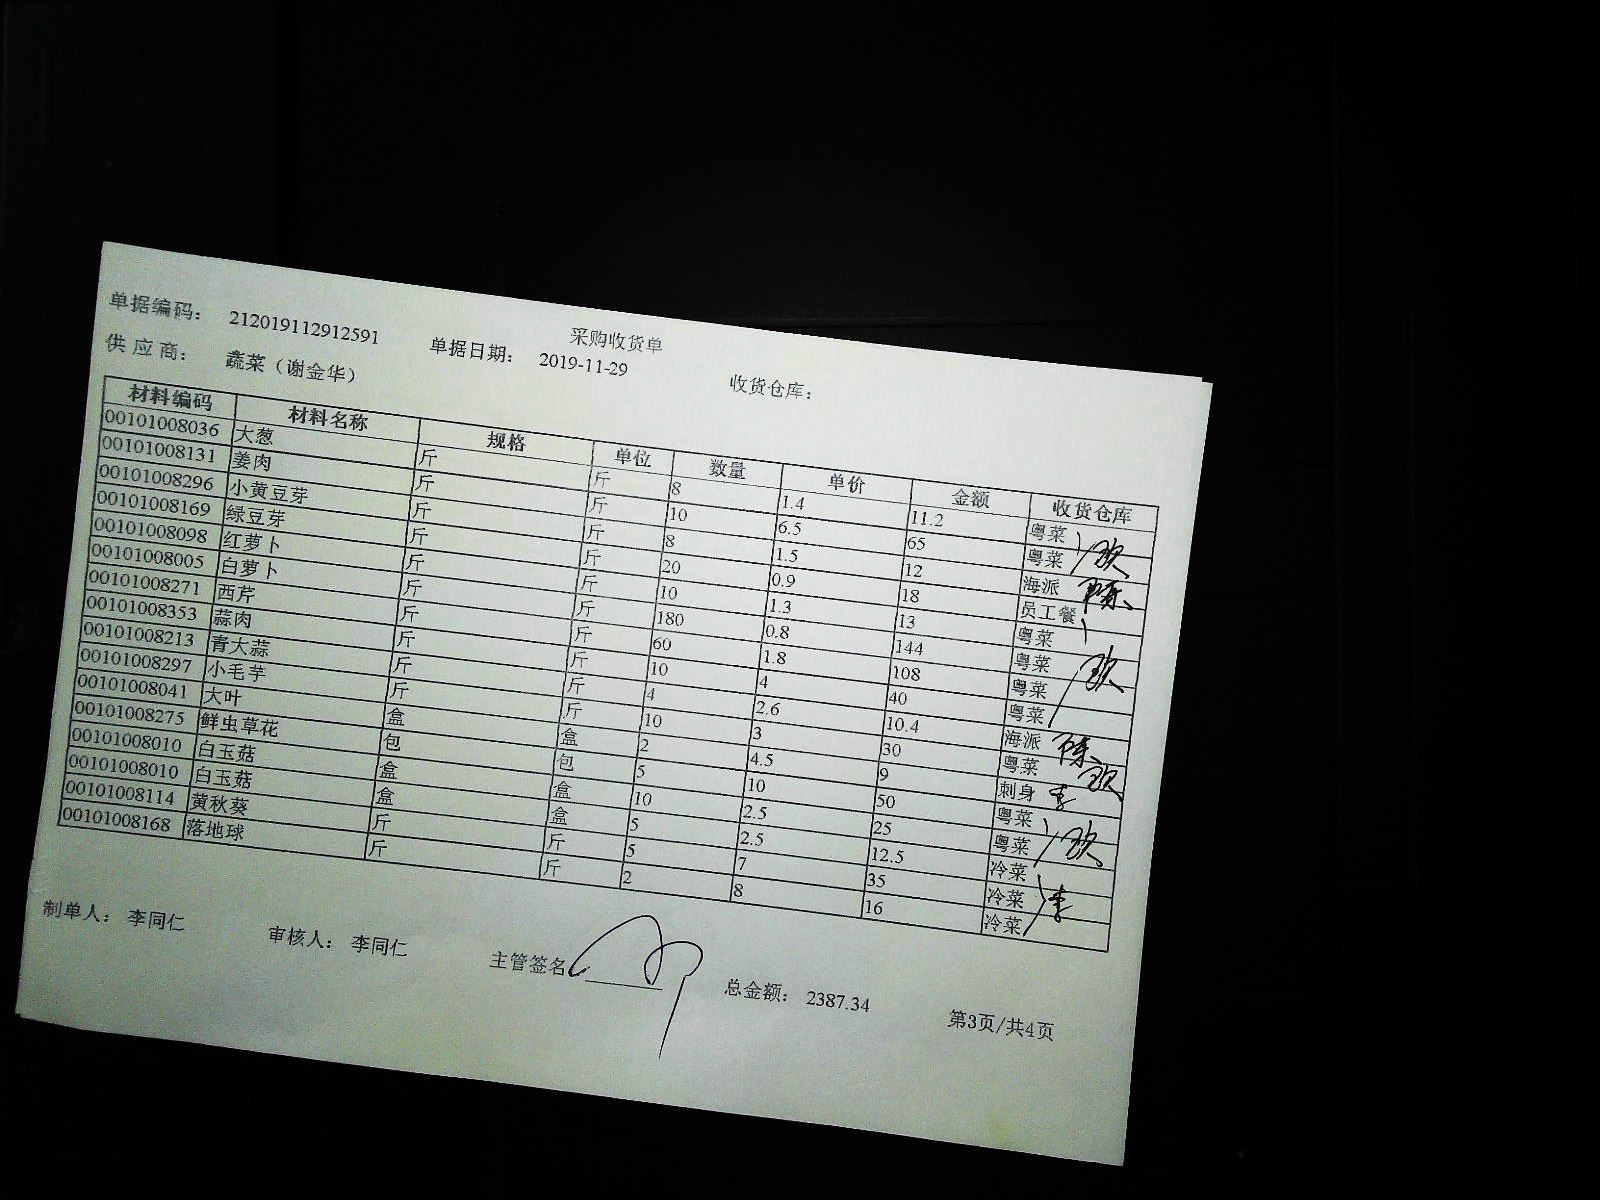 采购收货单
单据编码： 212019112912591 单据日期： 2019-11-29 收货仓库：
供应商： 蔬菜（谢金华）
材料编码 材料名称 规格 单位 数量 单价 金额 收货仓库
00101008036 大葱 斤 斤 8 1.4 11.2 粤菜
00101008131 姜肉 斤 斤 10 6.5 65 粤菜
00101008296 小黄豆芽 斤 斤 8 1.5 12 海派
00101008169 绿豆芽 斤 斤 20 0.9 18 员工餐
00101008098 红萝卜 斤 斤 10 1.3 13 粤菜
00101008005 白萝卜 斤 斤 180 0.8 144 粤菜
00101008271 西芹 斤 斤 60 1.8 108 粤菜
00101008353 蒜肉 斤 斤 10 4 40 粤菜
00101008213 青大蒜 斤 斤 4 2.6 10.4 海派
00101008297 小毛芋 斤 斤 10 3 30 粤菜
00101008041 大叶 盒 盒 2 4.5 9 刺身
00101008275 鲜虫草花 包 包 5 10 50 粤菜
00101008010 白玉菇 盒 盒 10 2.5 25 粤菜
00101008010 白玉菇 盒 盒 5 2.5 12.5 冷菜
00101008114 黄秋葵 斤 斤 5 7 35 冷菜
00101008168 落地球 斤 斤 2 8 16 冷菜
制单人： 李同仁 审核人： 李同仁 主管签名 总金额： 2387.34 第3页/共4页